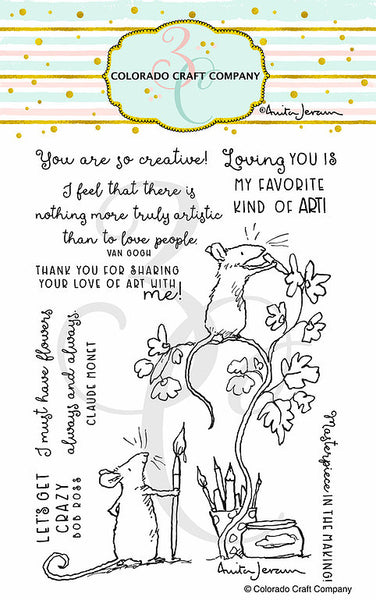 COLORADO CRAFT COMPANY
©Anita Jeram
You are so creative!
Loving YOU IS
MY FAVORITE
KIND OF ART!
I feel that there is
nothing more truly artistic
than to love people
VAN GOGH
THANK YOU FOR SHARING
YOUR LOVE OF ART WITH
me!
I must have flowers
always and always.
CLAUDE MONET
LET'S GET
CRAZY
BOB ROSS
Masterpiece IN THE MAKING!
Anita Jeram
© Colorado Craft Company